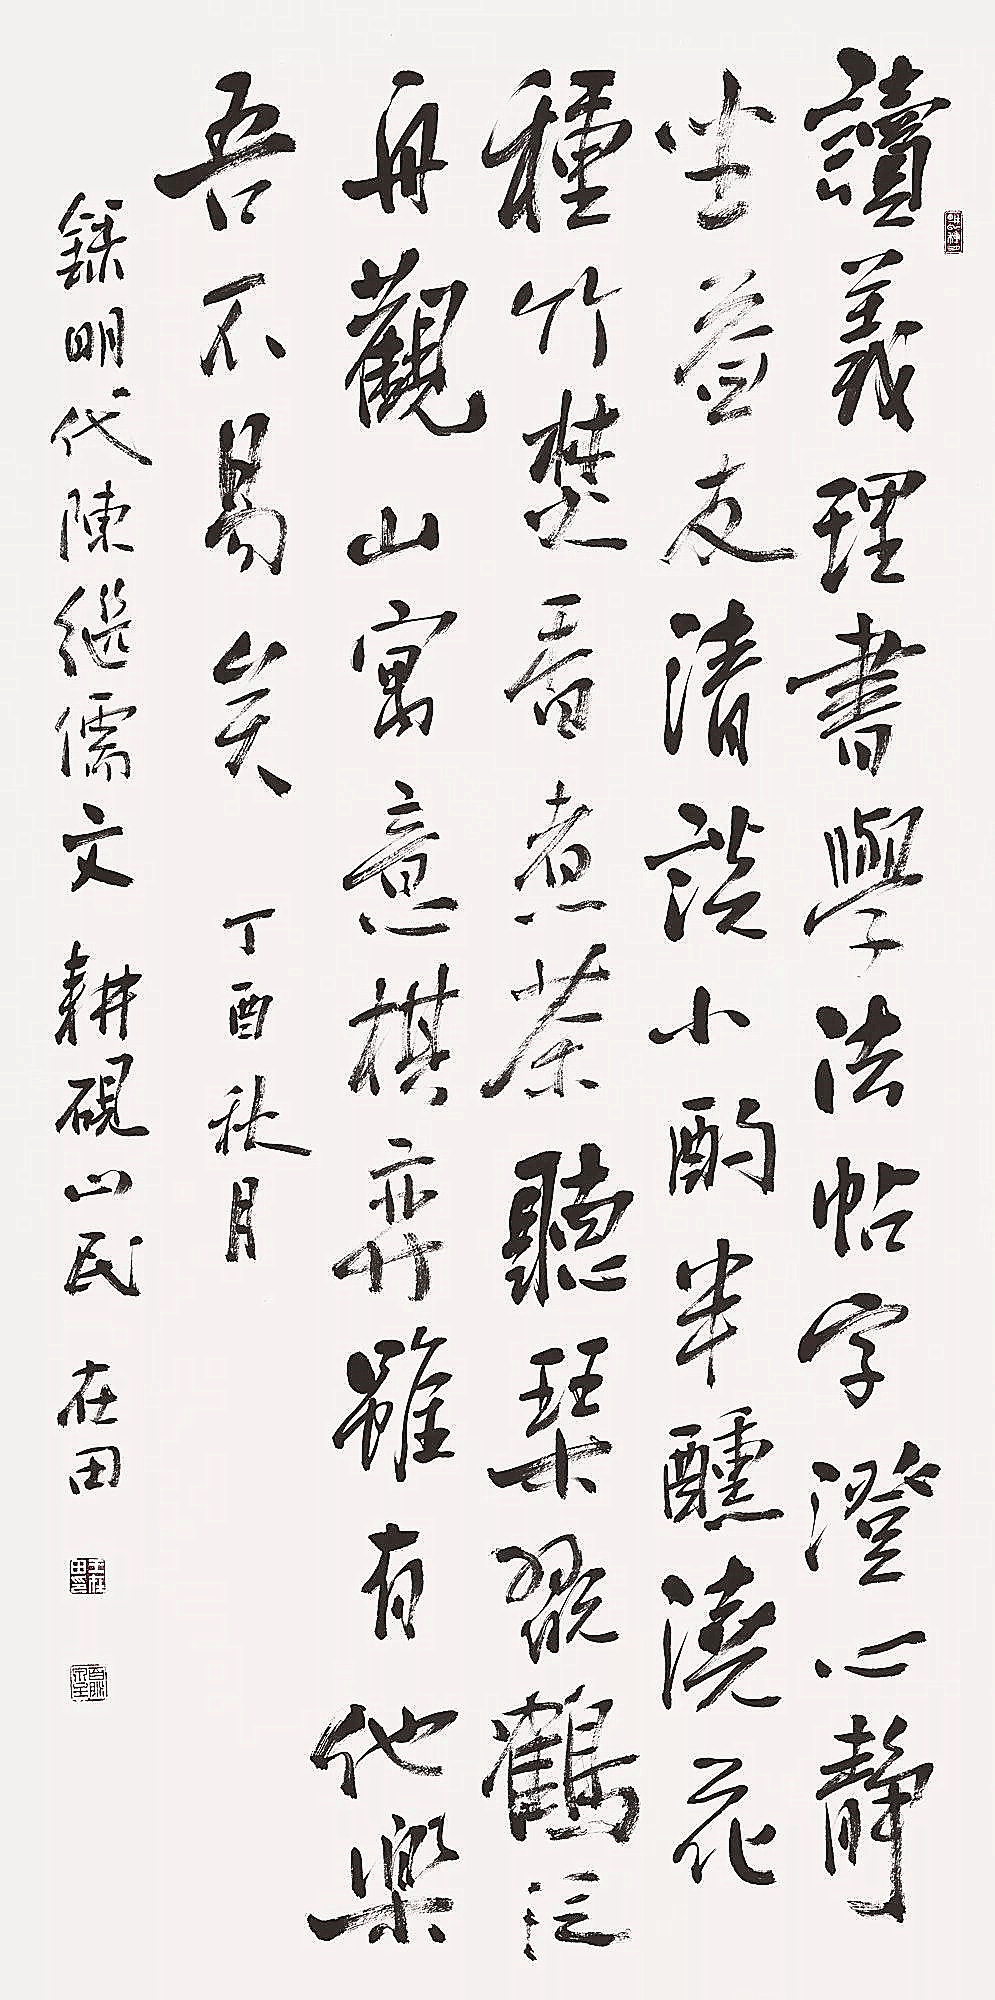 讀義理書學法帖字澄心靜
坐益友清談小酌半醺澆花
種竹焚香煮茶聽琴翫鶴泛
舟觀山寓意棋弈雖有他樂
吾不易矣 丁酉秋月
錄明代陳繼儒文 耕硯山民 在田